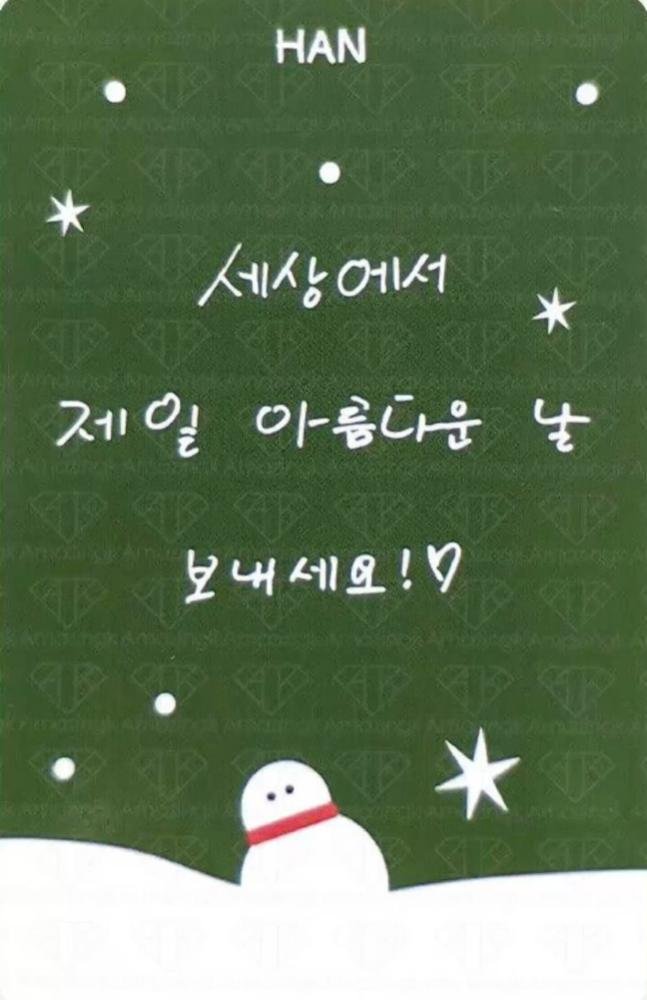 HAN
세상에서
제일 아름다운 날
보내세요!♡